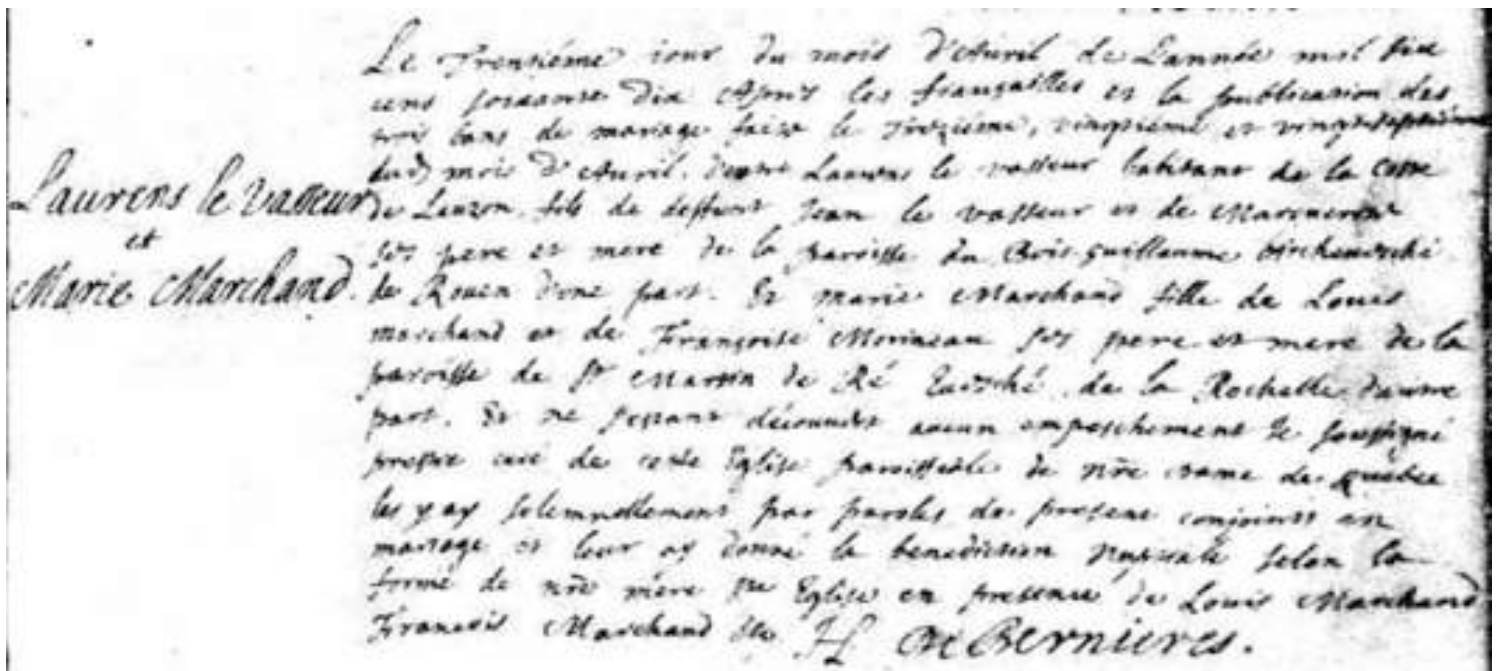 Laurens le Vasseur
et
Marie Marchand.
Le Trentiéme iour du mois d'Auril de L'année mil six
cens soixante Dix Apres les fiançailles et la publication des
trois bans de mariage faite le Treziéme, vingtiéme et vingt septiéme
dud mois d'Auril. d'entre Laurens le vasseur habitant de la Coste
de Lauzon, fils de deffunt Jean le vasseur et de Marguerite
ses pere et mere de la paroisse du Bois-guillaume Archeuesché
de Rouen d'une part. Et marie Marchand fille de Louis
marchand et de Françoise Morineau ses pere et mere de la
paroisse de St Martin de Ré Euesché de la Rochelle d'autre
part. Et ne s'estant découuert aucun empeschement Ie soussigné
prestre curé de cette Eglise paroissiale de nre Dame de Quebec
les y ay solemnellement par paroles de present conjoints en
mariage et leur ay donné la benediction Nuptiale selon la
forme de nre mére Ste Eglise en presence de Louis Marchand
Francois Marchand &c H De Bernieres.